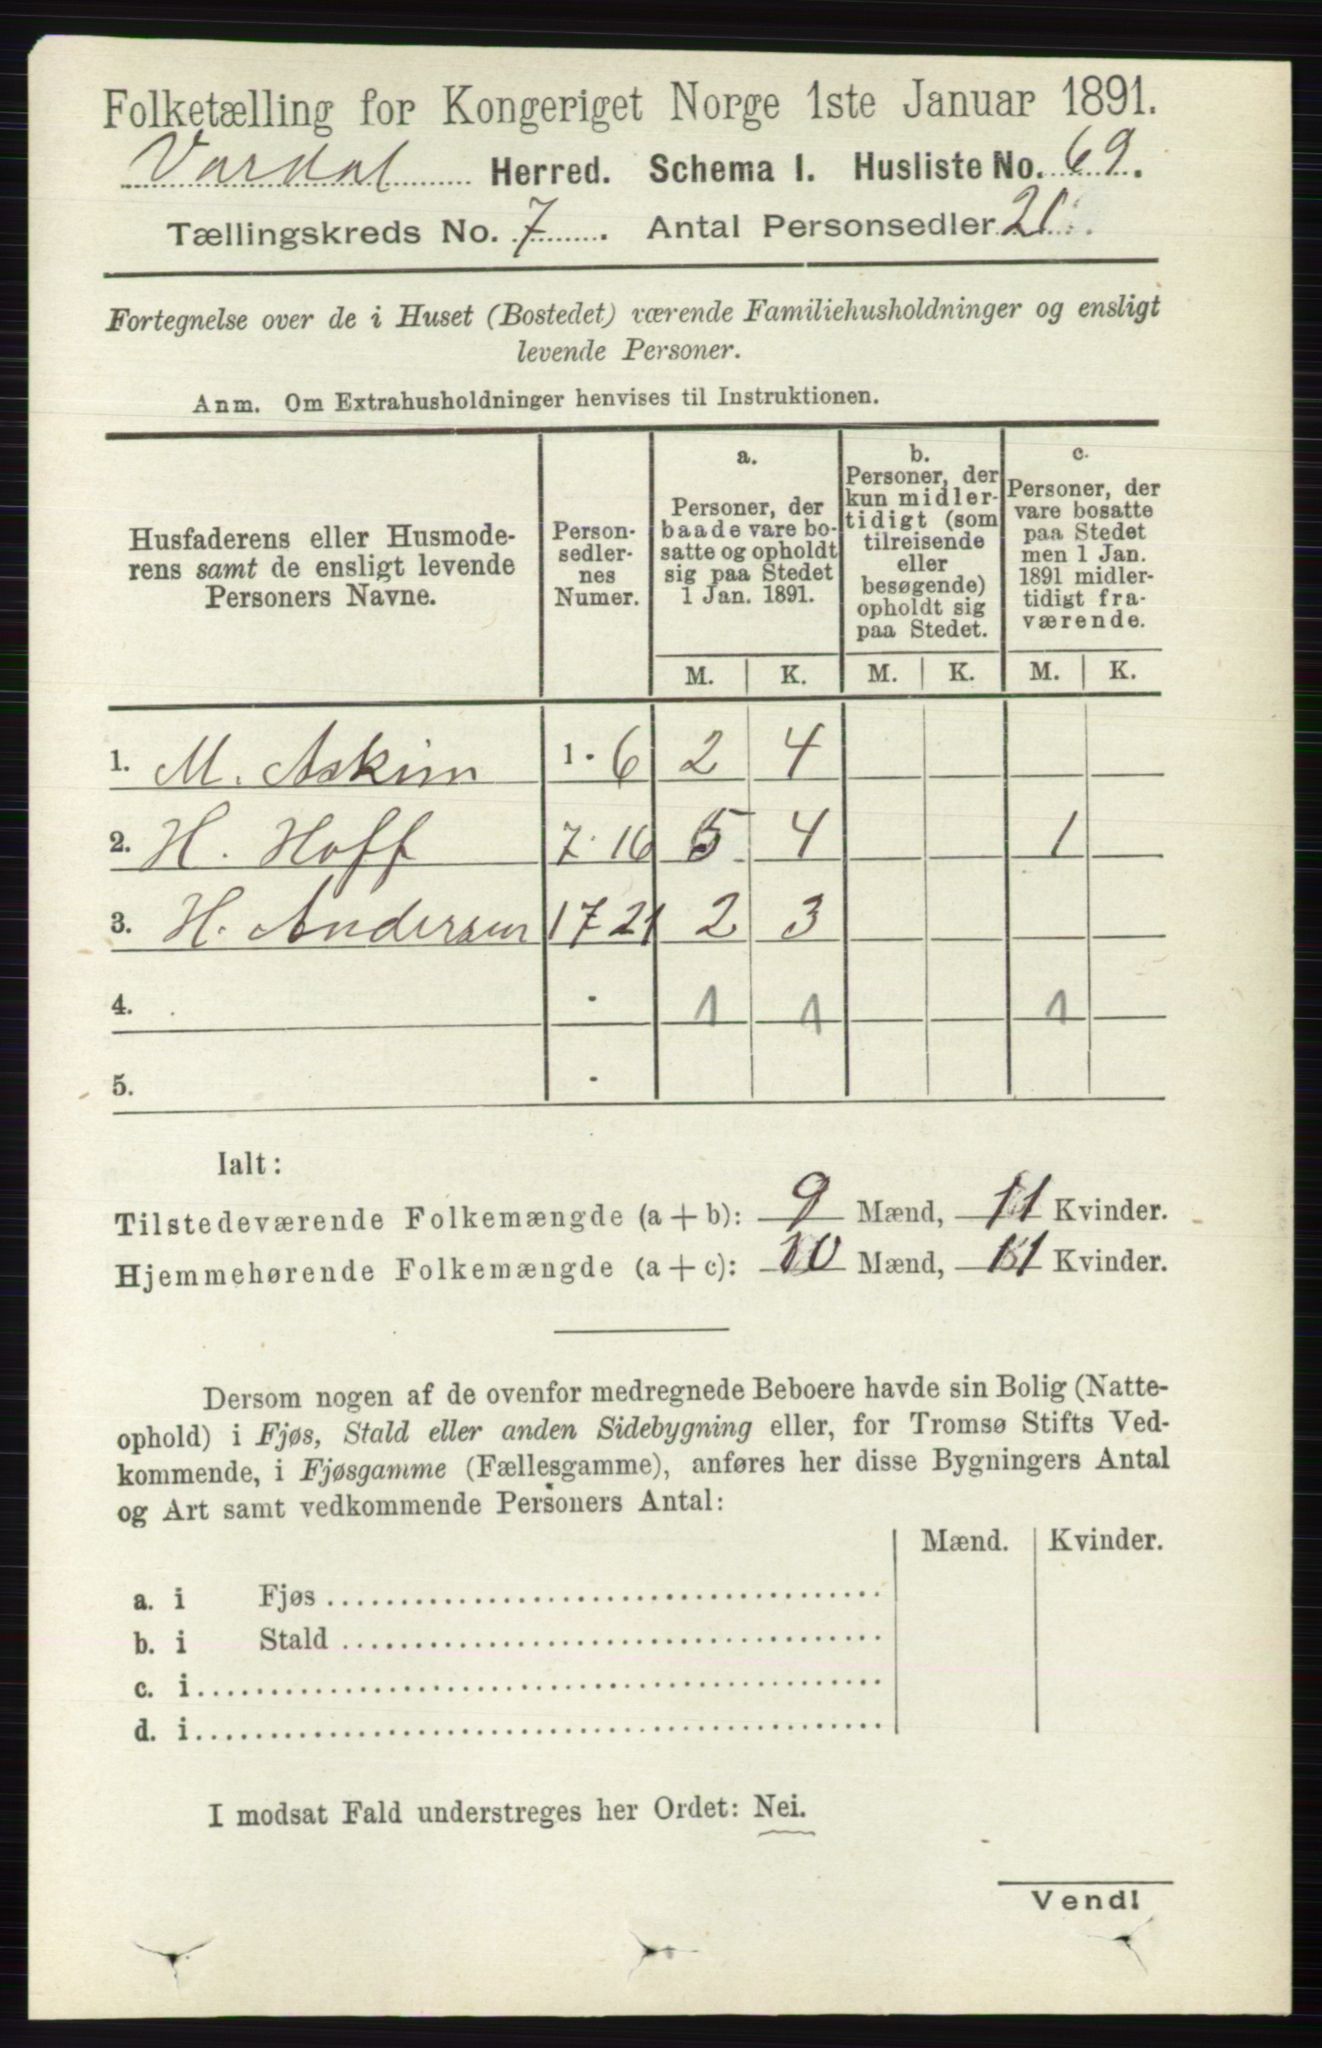 Folketælling for Kongeriget Norge 1ste Januar 1891.
Vardal Herred. Schema I. Husliste No. 69.
Tællingskreds No. 7. Antal Personsedler
Fortegnelse over de i Huset (Bostedet) værende Familiehusholdninger og ensligt
levende Personer.
Anm. Om Extrahusholdninger henvises til Instruktionen.
Husfaderens eller Husmode-
rens samt de ensligt levende
Personers Navne.
Person-
sedler-
nes
Numer.
a.
Personer, der
baade vare bo-
satte og opholdt
sig paa Stedet
1 Jan. 1891.
b.
Personer, der
kun midler-
tidigt (som
tilreisende
eller
besøgende)
opholdt sig
paa Stedet.
c.
Personer, der
vare bosatte
paa Stedet
men 1 Jan.
1891 midler-
tidigt fra-
værende.
M. K. M. K. M. K.
1. M. Askim 1 - 6 2 4
2. H. Hoff 7 - 16 5 4 1
3. H. Andersen 17 21 2 3
4. - 1 1 1
5. -
Ialt:
Tilstedeværende Folkemængde (a + b): 9 Mænd, 11 Kvinder.
Hjemmehørende Folkemængde (a + c): 10 Mænd, 11 Kvinder.
Dersom nogen af de ovenfor medregnede Beboere havde sin Bolig (Natte-
ophold) i Fjøs, Stald eller anden Sidebygning eller, for Tromsø Stifts Ved-
kommende, i Fjøsgamme (Fællesgamme), anføres her disse Bygningers Antal
og Art samt vedkommende Personers Antal:
Mænd. Kvinder.
a. i Fjøs
b. i Stald
c. i
d. i
I modsat Fald understreges her Ordet: Nei.
Vend!